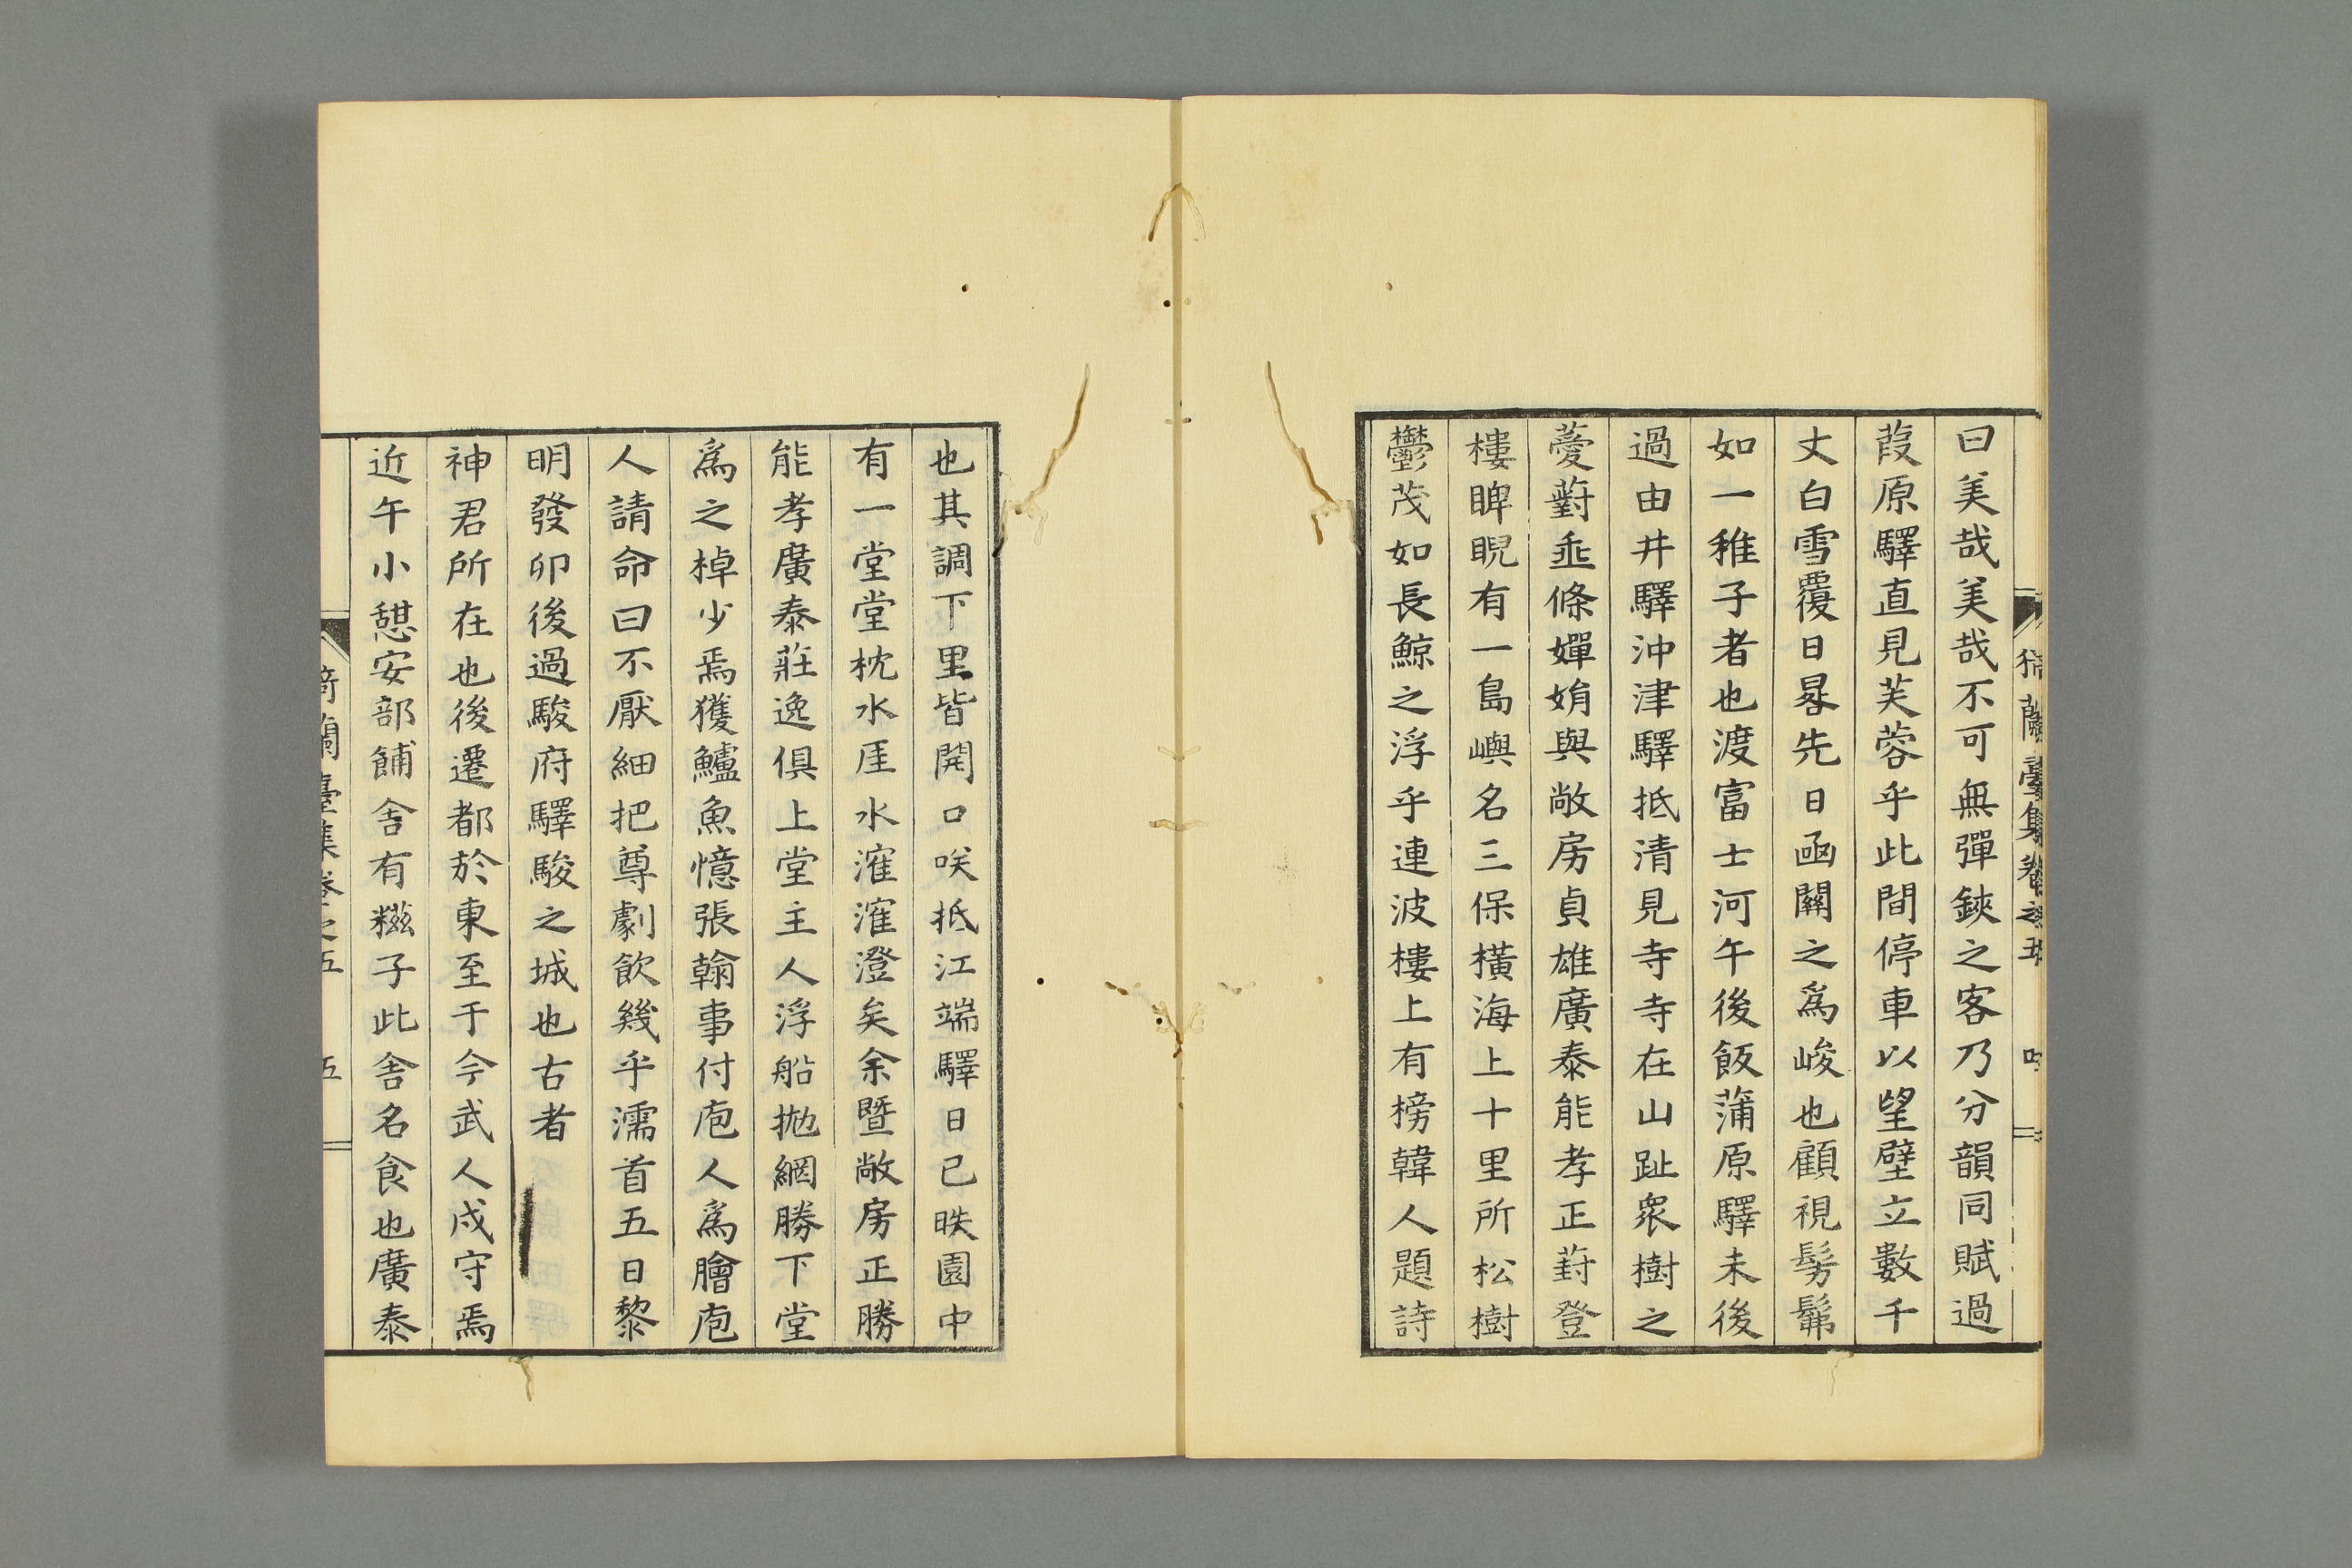 曰美哉美哉不可無彈鋏之客乃分韻同賦過
葭原驛直見芙蓉乎此間停車以望壁立數千
丈白雪覆日晷先日凾關之爲峻也顧視髣髴
如一稚子者也渡富士河午後飯蒲原驛未後
過由井驛沖津驛抵清見寺寺在山趾衆樹之
薆薱埀條嬋娟與敞房貞雄廣泰能孝正葑登
樓睥睨有一島嶼名三保橫海上十里所松樹
鬱茂如長鯨之浮乎連波樓上有榜韓人題詩
也其調下里皆開口咲抵江端驛日已昳園中
有一堂堂枕水厓水漼漼澄矣余暨敞房正勝
能孝廣泰莊逸俱上堂主人浮船拋網勝下堂
爲之棹少焉獲鱸魚憶張翰事付庖人爲膾庖
人請命曰不厭細把尊劇飲幾乎濡首五日黎
明發卯後過駿府驛駿之城也古者
神君所在也後遷都於東至于今武人戍守焉
近午小憩安部餔舍有糍子此舍名食也廣泰
猗蘭臺集卷之五
五